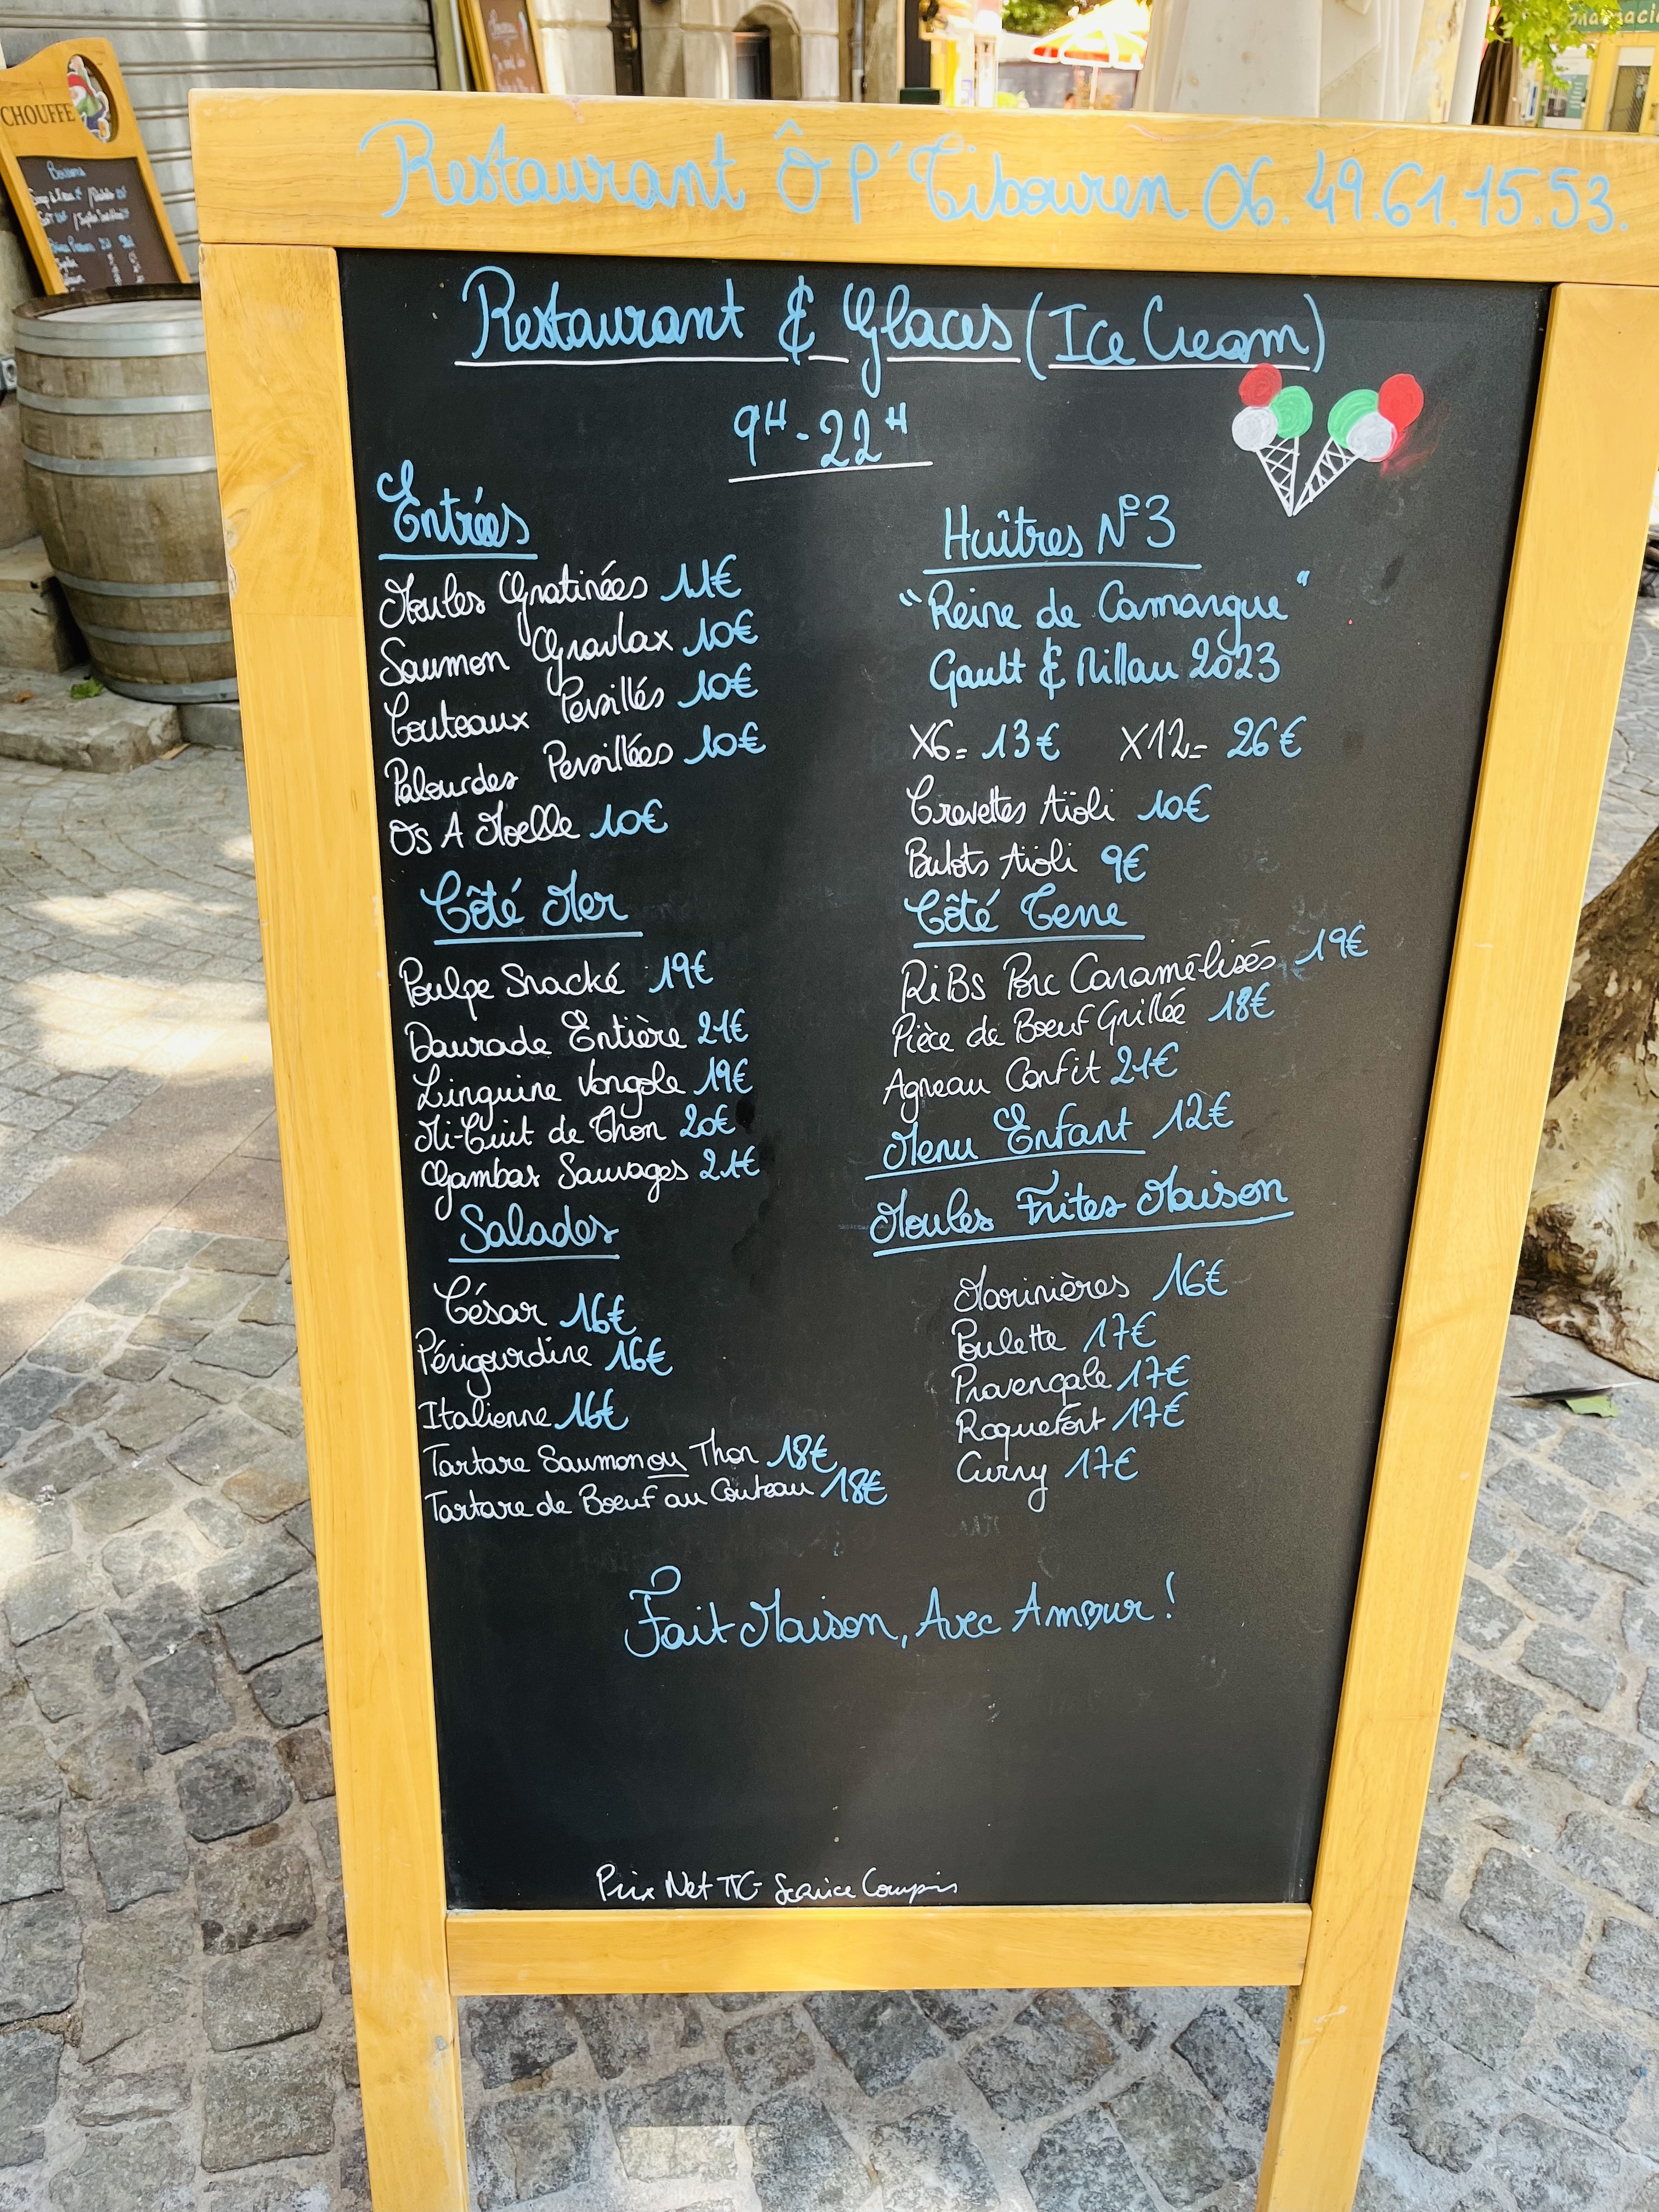 CHOUFFE
Restaurant Ô P'Tibouren 06.49.61.15.53.
Restaurant & Glaces (Ice Cream)
9H-22H
Entrées
Moules Gratinées 11€
Saumon Gravlax 10€
Couteaux Persillés 10€
Palourdes Persillées 10€
Os A Moelle 10€
Côté Mer
Poulpe Snacké 19€
Daurade Entière 21€
Linguine Vongole 19€
Mi-Cuit de Thon 20€
Gambas Sauvages 21€
Salades
César 16€
Périgourdine 16€
Italienne 16€
Tartare Saumon ou Thon 18€
Tartare de Boeuf au Couteau 18€
Huîtres N°3
"Reine de Camargue"
Gault & Millau 2023
X6= 13€ X12= 26€
Crevettes Aïoli 10€
Bulots Aïoli 9€
Côté Terre
RiBs Porc Caramélisés 19€
Pièce de Boeuf Grillée 18€
Agneau Confit 21€
Menu Enfant 12€
Moules Frites Maison
Marinières 16€
Poulette 17€
Provençale 17€
Roquefort 17€
Curry 17€
Fait Maison, Avec Amour!
Prix Net TTC Service Compris